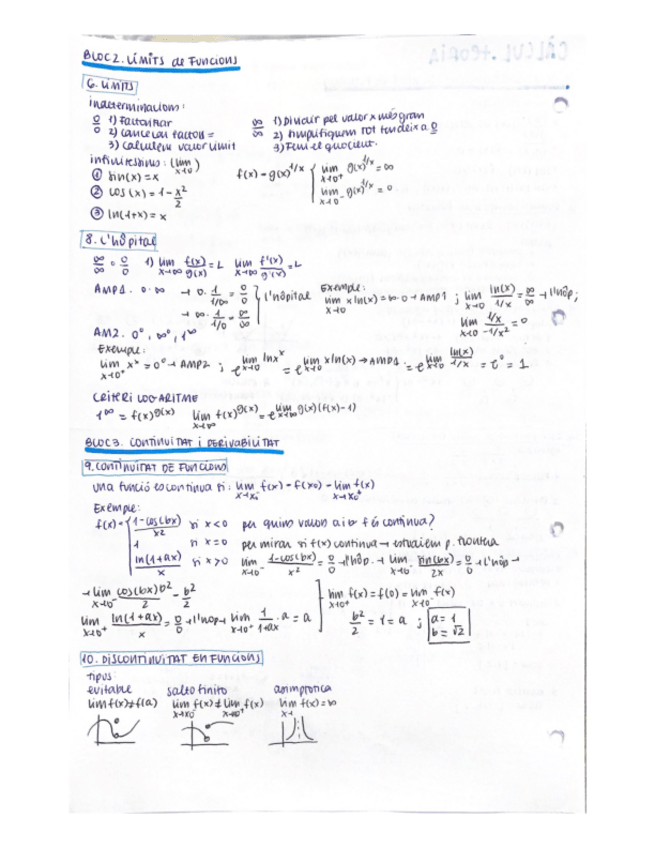 BLOC 2. LÍMITS de FUNCIONS
6. LÍMITS
indeterminacions:
0/0 1) Factoritzar
2) cancelar factors =
3) calculem valor límit
∞/∞ 1) Dividir pel valor x més gran
2) simplifiquem tot tendeix a 0
3) Fem el quocient.
infinitesims: (lim x→0)
① sin(x) = x
② cos(x) = 1 - x²/2
③ ln(1+x) = x
f(x) = g(x)^1/x { lim x→0⁺ g(x)^1/x = ∞
lim x→0⁻ g(x)^1/x = 0
8. L'hôpital
∞/∞ = 0/0 1) lim x→∞ f(x)/g(x) = L lim x→∞ f'(x)/g'(x) = L
AMP1. 0·∞ → 0· 1/1/∞ = 0/0
→ ∞· 1/1/0 = ∞/∞
} l'hôpital
Exemple:
lim x→0 x ln(x) = ∞·0 → AMP1 ; lim x→0 ln(x)/1/x = ∞/∞ → l'hôp;
lim x→0 1/x/-1/x² = 0
AM2. 0⁰, ∞⁰, 1^∞
Exemple:
lim x→0⁺ xˣ = 0⁰ → AMP2 ; e^lim x→0 ln xˣ = e^lim x→0 x ln(x) → AMP1. = e^lim x→0 ln(x)/1/x = e⁰ = 1
CRITERI LOGARITME
1^∞ = f(x)^g(x) lim x→∞ f(x)^g(x) = e^lim x→∞ g(x)(f(x)-1)
BLOC 3. CONTINUITAT i DERIVABILITAT
9. CONTINUITAT DE FUNCIONS
una funció es continua si: lim x→x₀⁻ f(x) = f(x₀) = lim x→x₀⁺ f(x)
Exemple:
f(x) = { 1-cos(bx)/x² si x<0
1 si x=0
ln(1+ax)/x si x>0
per quins valors a i b f és contínua?
per mirar si f(x) continua → estudiem p. frontera
lim x→0⁻ 1-cos(bx)/x² = 0/0 → l'hôp. → lim x→0⁻ sin(bx)/2x = 0/0 → l'hôp →
→ lim x→0⁻ cos(bx)b²/2 = b²/2
lim x→0⁺ ln(1+ax)/x = 0/0 → l'hop → lim x→0⁺ 1/1+ax · a = a
lim x→0⁺ f(x) = f(0) = lim x→0⁻ f(x)
b²/2 = 1 = a ; a = 1
b = √2
10. DISCONTINUITAT EN FUNCIONS
tipus:
evitable salto finito asimptotica
lim f(x) ≠ f(a) lim x→x₀⁻ f(x) ≠ lim x→x₀⁺ f(x) lim x→ f(x) = ∞